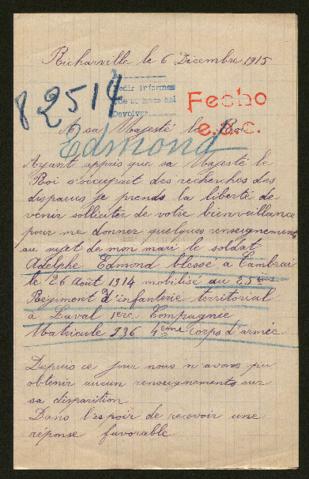 Richarville le 6 Décembre 1915
82514
Pedir informes
Devolver
Fecho
e.d.c.
A sa Majesté le Roi
Edmond
Ayant appris que sa Majesté le
Roi s'occupait des recherches des
disparus je prends la liberté de
venir solliciter de votre bienveillance
pour me donner quelques renseignements
au sujet de mon mari le soldat
Adelphe Edmond blessé à Cambrai
le 26 Août 1914 mobilisé au 25e
Régiment d'infanterie territorial
à Laval 1ere Compagnie
Matricule 236 4eme corps d'armée
Depuis ce jour nous n'avons pu
obtenir aucun renseignements sur
sa disparition.
Dans l'espoir de recevoir une
réponse favorable